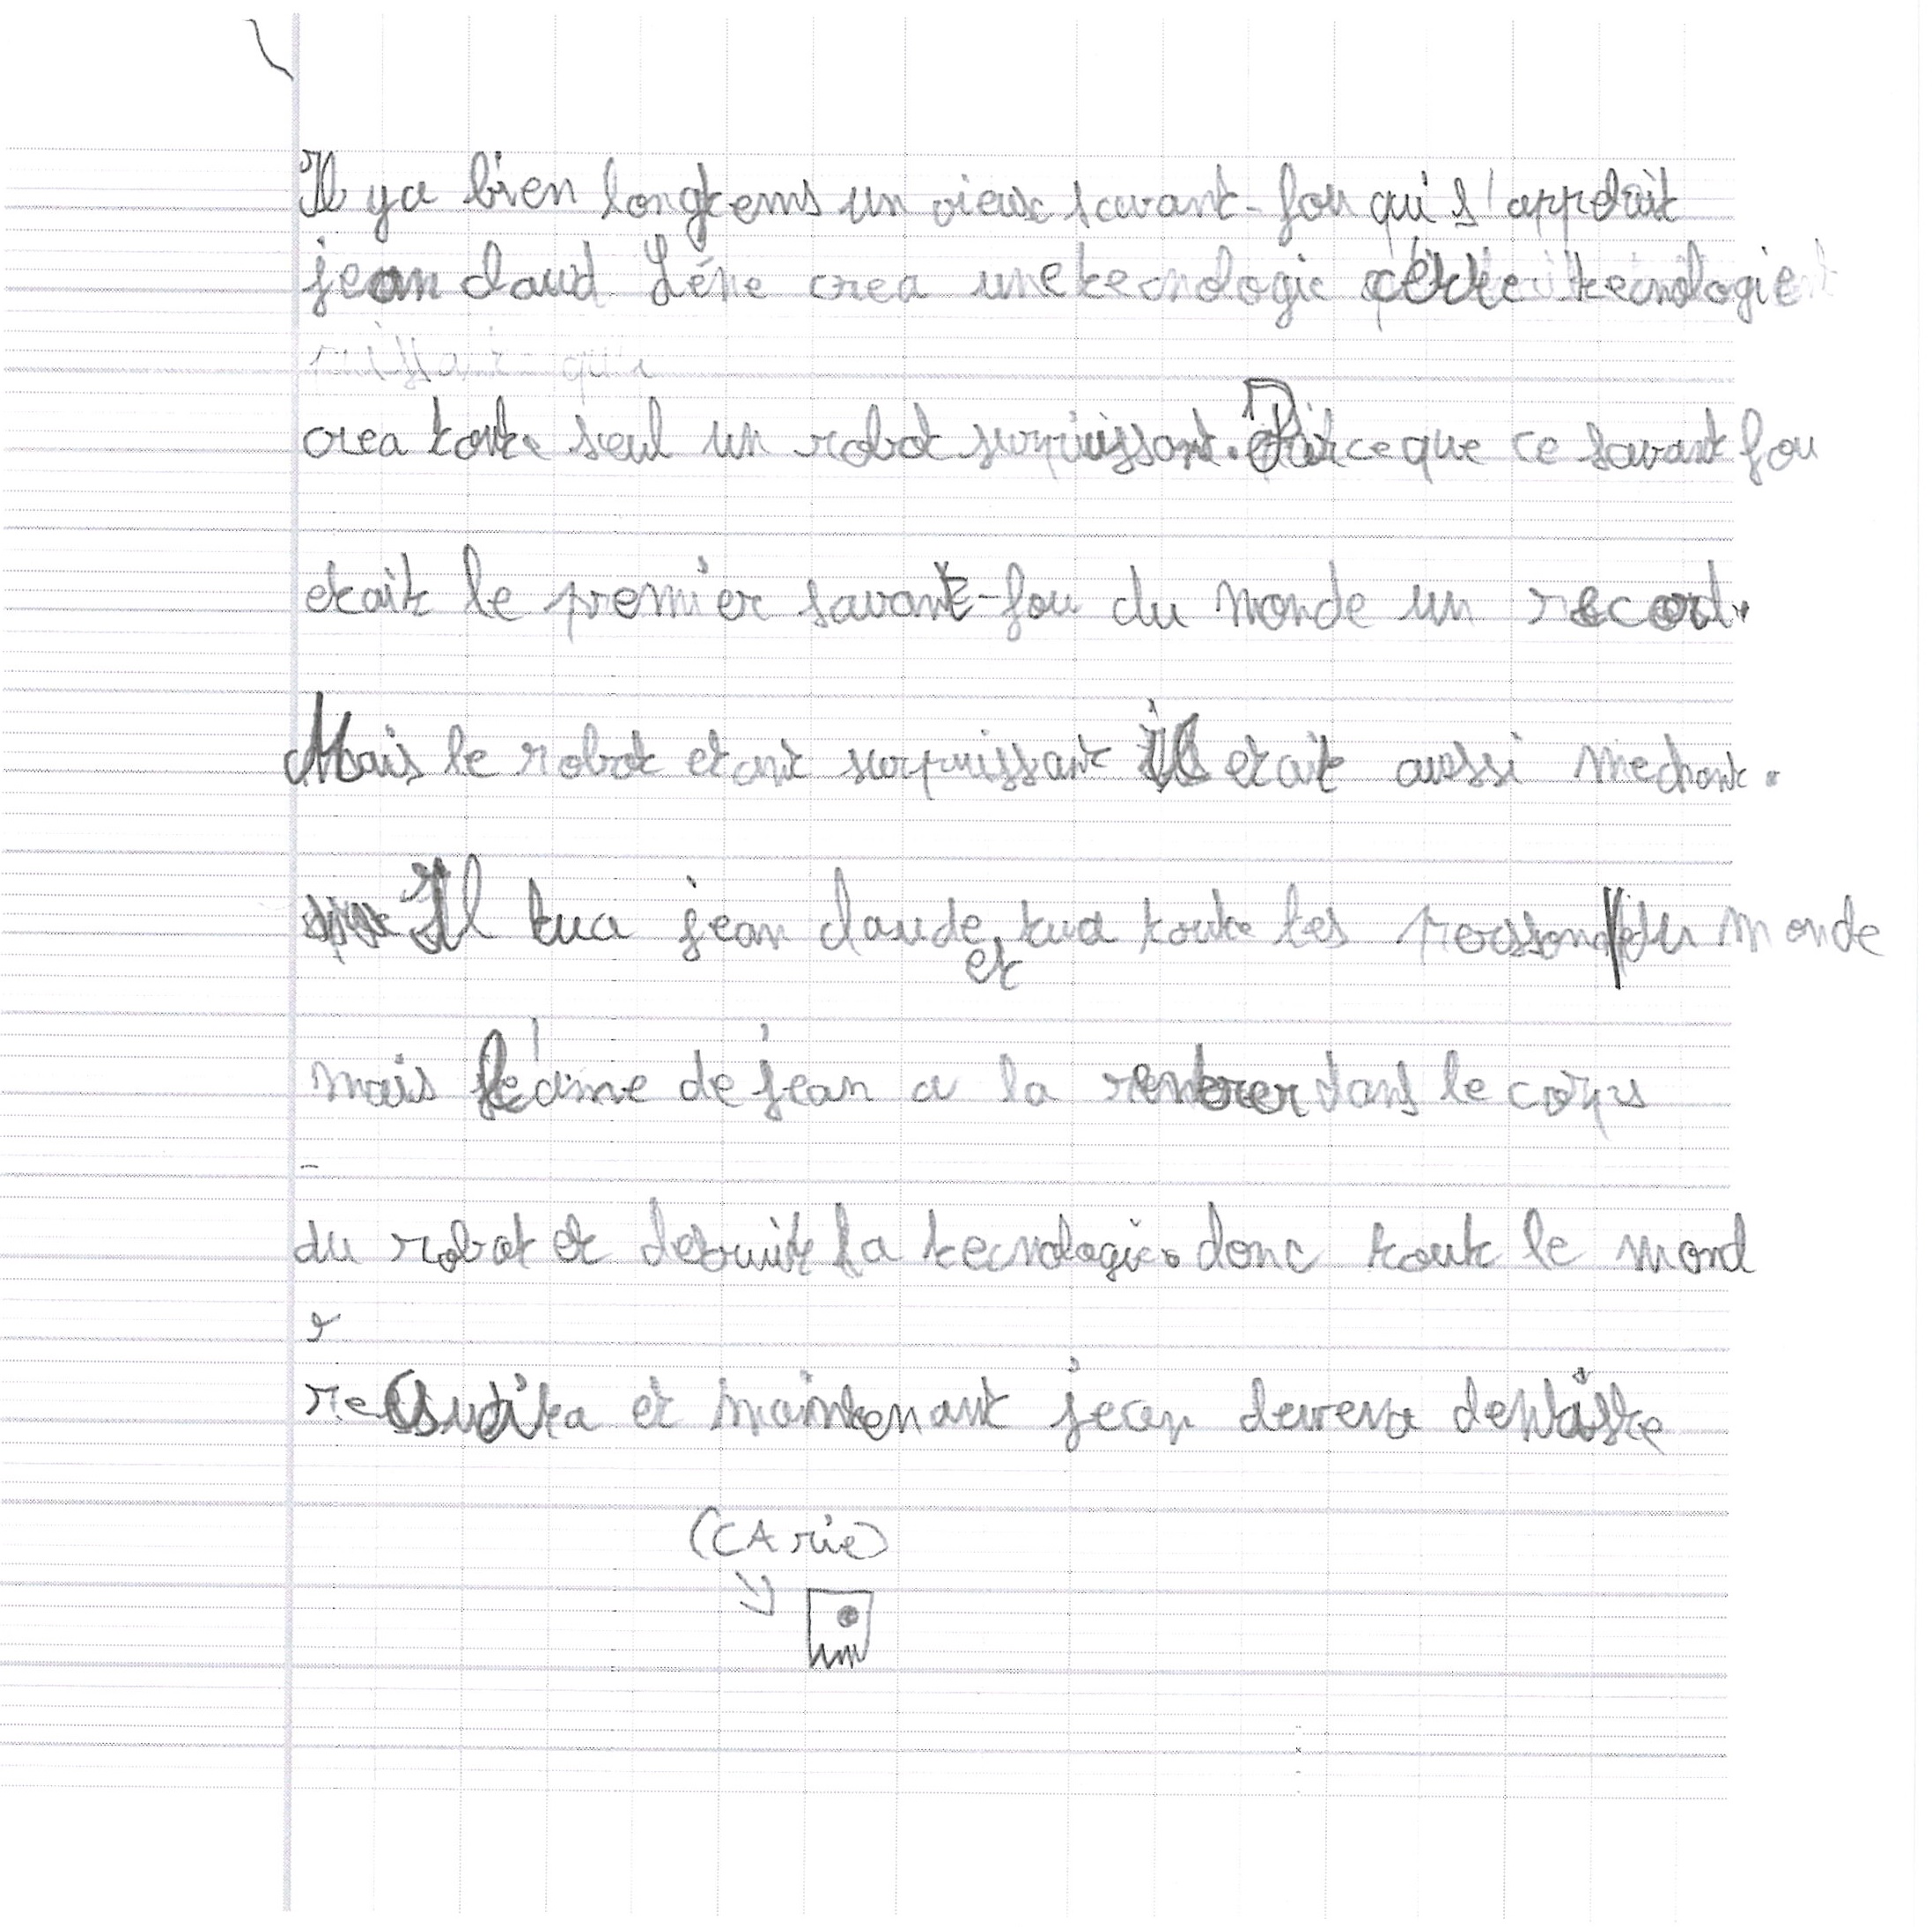 Il ya bien longtems un vieux savant-fou qui s'appelait
jean claud Léne crea une tecnologie cette tecnologie
crea toute seul un robot surpuissant. Parce que ce savant fou
etait le premier savant-fou du monde un record.
Mais le robot etant surpuissant il etait aussi mechant.
Il tua jean claude et tua toute les du monde
mais l'âme de jean a la rentrer dans le corps
du robot et la tecnologie. donc tout le mond
et maintenant jean devera dentiste
(CArie)